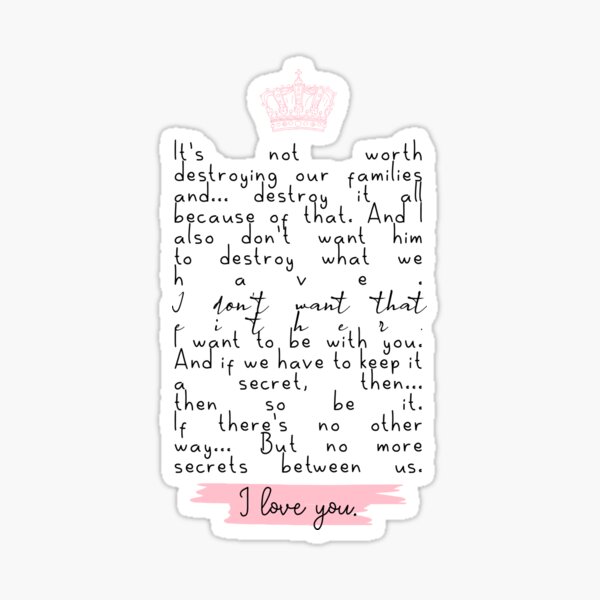 It's not worth
destroying our families
and... destroy it all
because of that. And I
also don't want him
to destroy what we
have.
I don't want that
either.
I want to be with you.
And if we have to keep it
a secret, then...
then so be it.
If there's no other
way... But no more
secrets between us.
I love you.